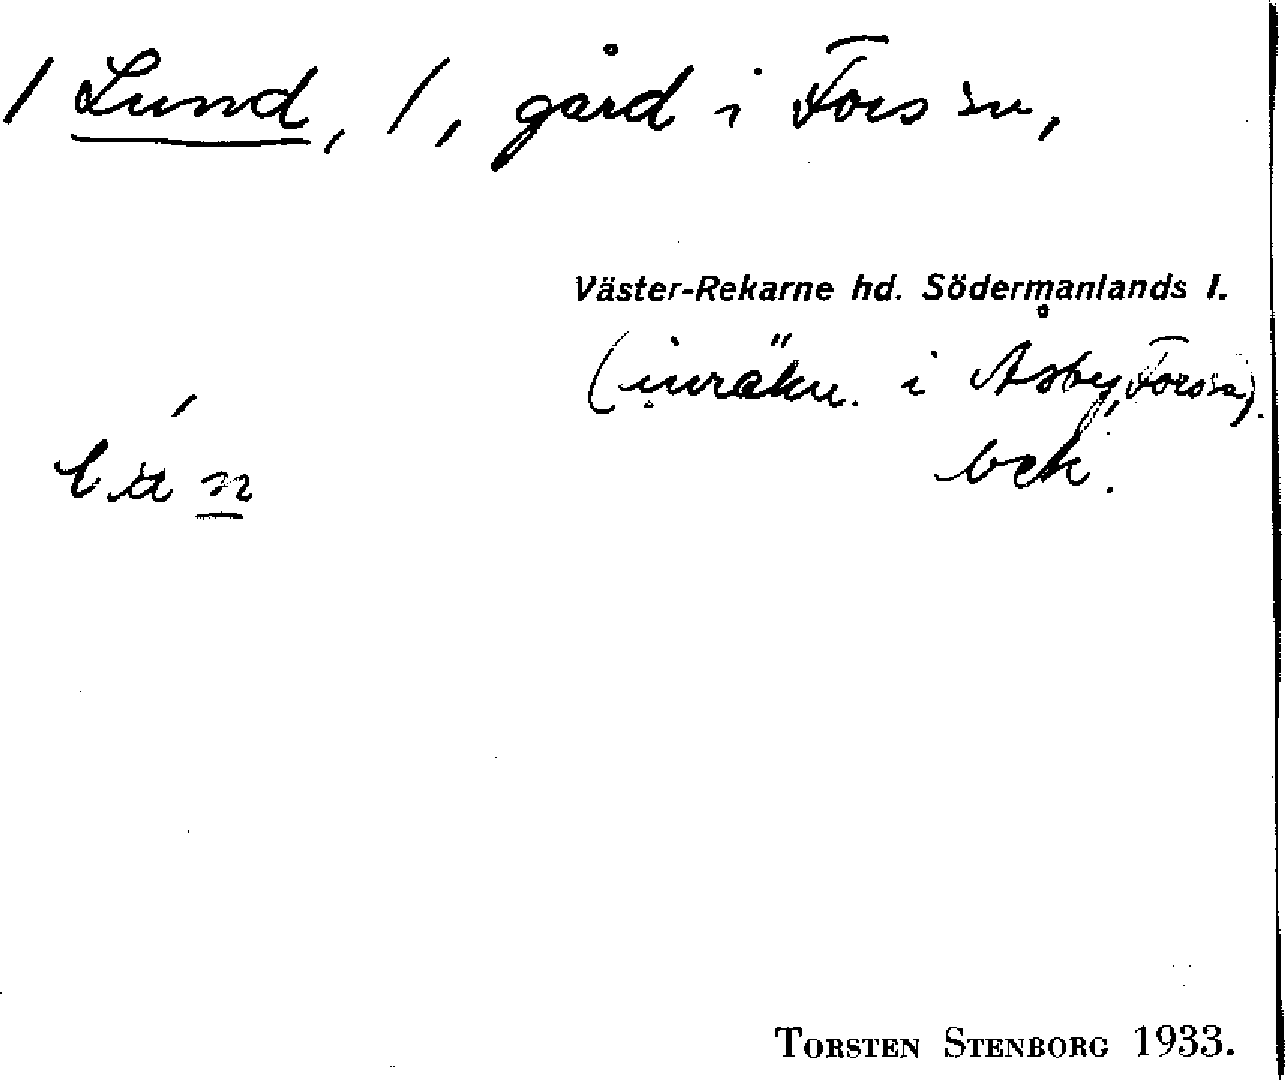 / Lund, /, gård i Fors sn,
Väster-Rekarne hd. Södermanlands l.
(inräkn. i Åsby, Fors sn).
bek.
TORSTEN STENBORG 1933.